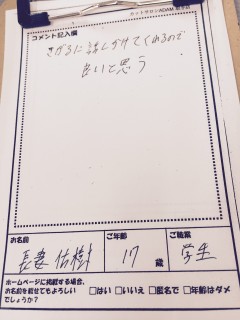 カットサロンADAM
コメント記入欄
きがるに話しかけてくれるので
良いと思う
お名前
ご年齢
ご職業
長妻 佑樹
17歳
学生
ホームページに掲載する場合、
お名前を載せてもよろしい
でしょうか?
□はい □いいえ □匿名で □年齢はダメ